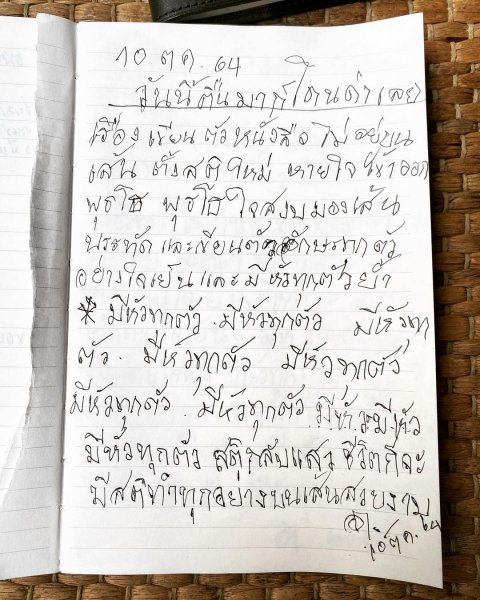 10 ตค. 64
วันนี้ตื่นมาก็โดนด่าเลย
เรื่องเขียนตัวหนังสือ ไม่อยู่บน
เส้น ตั้งสติใหม่ หายใจเข้าออก
พุทโธ พุทโธ ใจสงบมองเส้น
บรรทัด และเขียนตัวอักษรทุกตัว
อย่างใจเย็น และมีหัวทุกตัวย้ำ
* มีหัวทุกตัว . มีหัวทุกตัว มีหัวทุก
ตัว . มีหัวทุกตัว มีหัวทุกตัว
มีหัวทุกตัว . มีหัวทุกตัว มีหัว มีหัว
มีหัวทุกตัว สติกลับแล้ว ชีวิตก็จะ
มีสติทำทุกอย่างบนเส้นสวยงาม